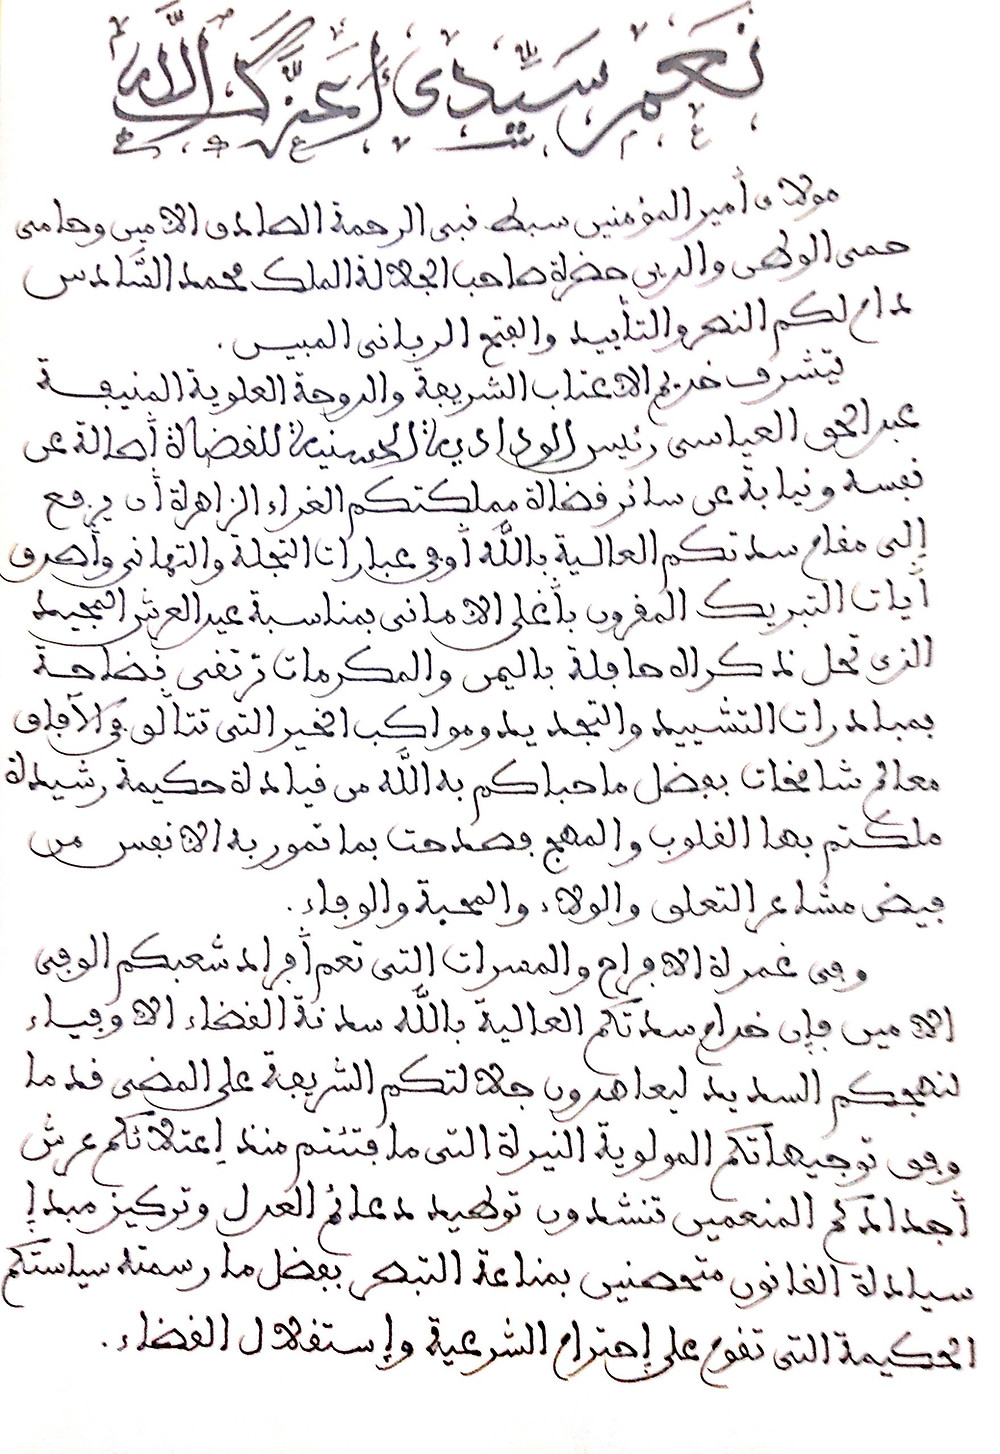 نعم سيدي أعزك الله
مولاي أمير المؤمنين سبط نبي الرحمة الصادق الامين وحامي
حمى الوطن والدين حضرة صاحب الجلالة الملك محمد السَّادس
دام لكم النصر والتأييد والفتح الرباني المبين.
يتشرف خديم الاعتاب الشريفة والدوحة العلوية المنيفة
عبد الحق العياسي رئيس الودادية الحسنية للقضاة أصالة عن
نفسه ونيابة عن سائر قضاة مملكتكم الغراء الزاهرة أن يرفع
إلى مقام سدتكم العالية بالله أوفى عبارات التجلة والتهاني وأصدق
آيات التبريك المقرون بأغلى الاماني بمناسبة عيد العرش المجيد
الذي تحل ذكراه حافلة باليمن والمكرمات ترتقي فضاحة
بمبادرات التشييد والتجديد ومواكب الخير التي تتألق في الآفاق
معالم شامخات بفضل ما حباكم به الله من قيادة حكيمة رشيدة
ملكتم بها القلوب والمهج فصدحت بما تمور به الانفس من
فيض مشاعر التعلق والولاء والمحبة والوفاء.
وفي غمرة الافراح والمسرات التي تعم أفراد شعبكم الوفي
الامين فإن خدام سدتكم العالية بالله سدنة القضاء الاوفياء
لنهجكم السديد ليعاهدون جلالتكم الشريفة على المضي قدما
وفق توجيهاتكم المولوية النيرة التي ما فتئتم منذ إعتلائكم عرش
أجدادكم المنعمين تنشدون توطيد دعائم العدل وتركيز مبدإ
سيادة القانون متحصنين بمناعة التبصر بفضل ما رسمته سياستكم
الحكيمة التي تقوم على إحترام الشرعية وإستقلال القضاء.